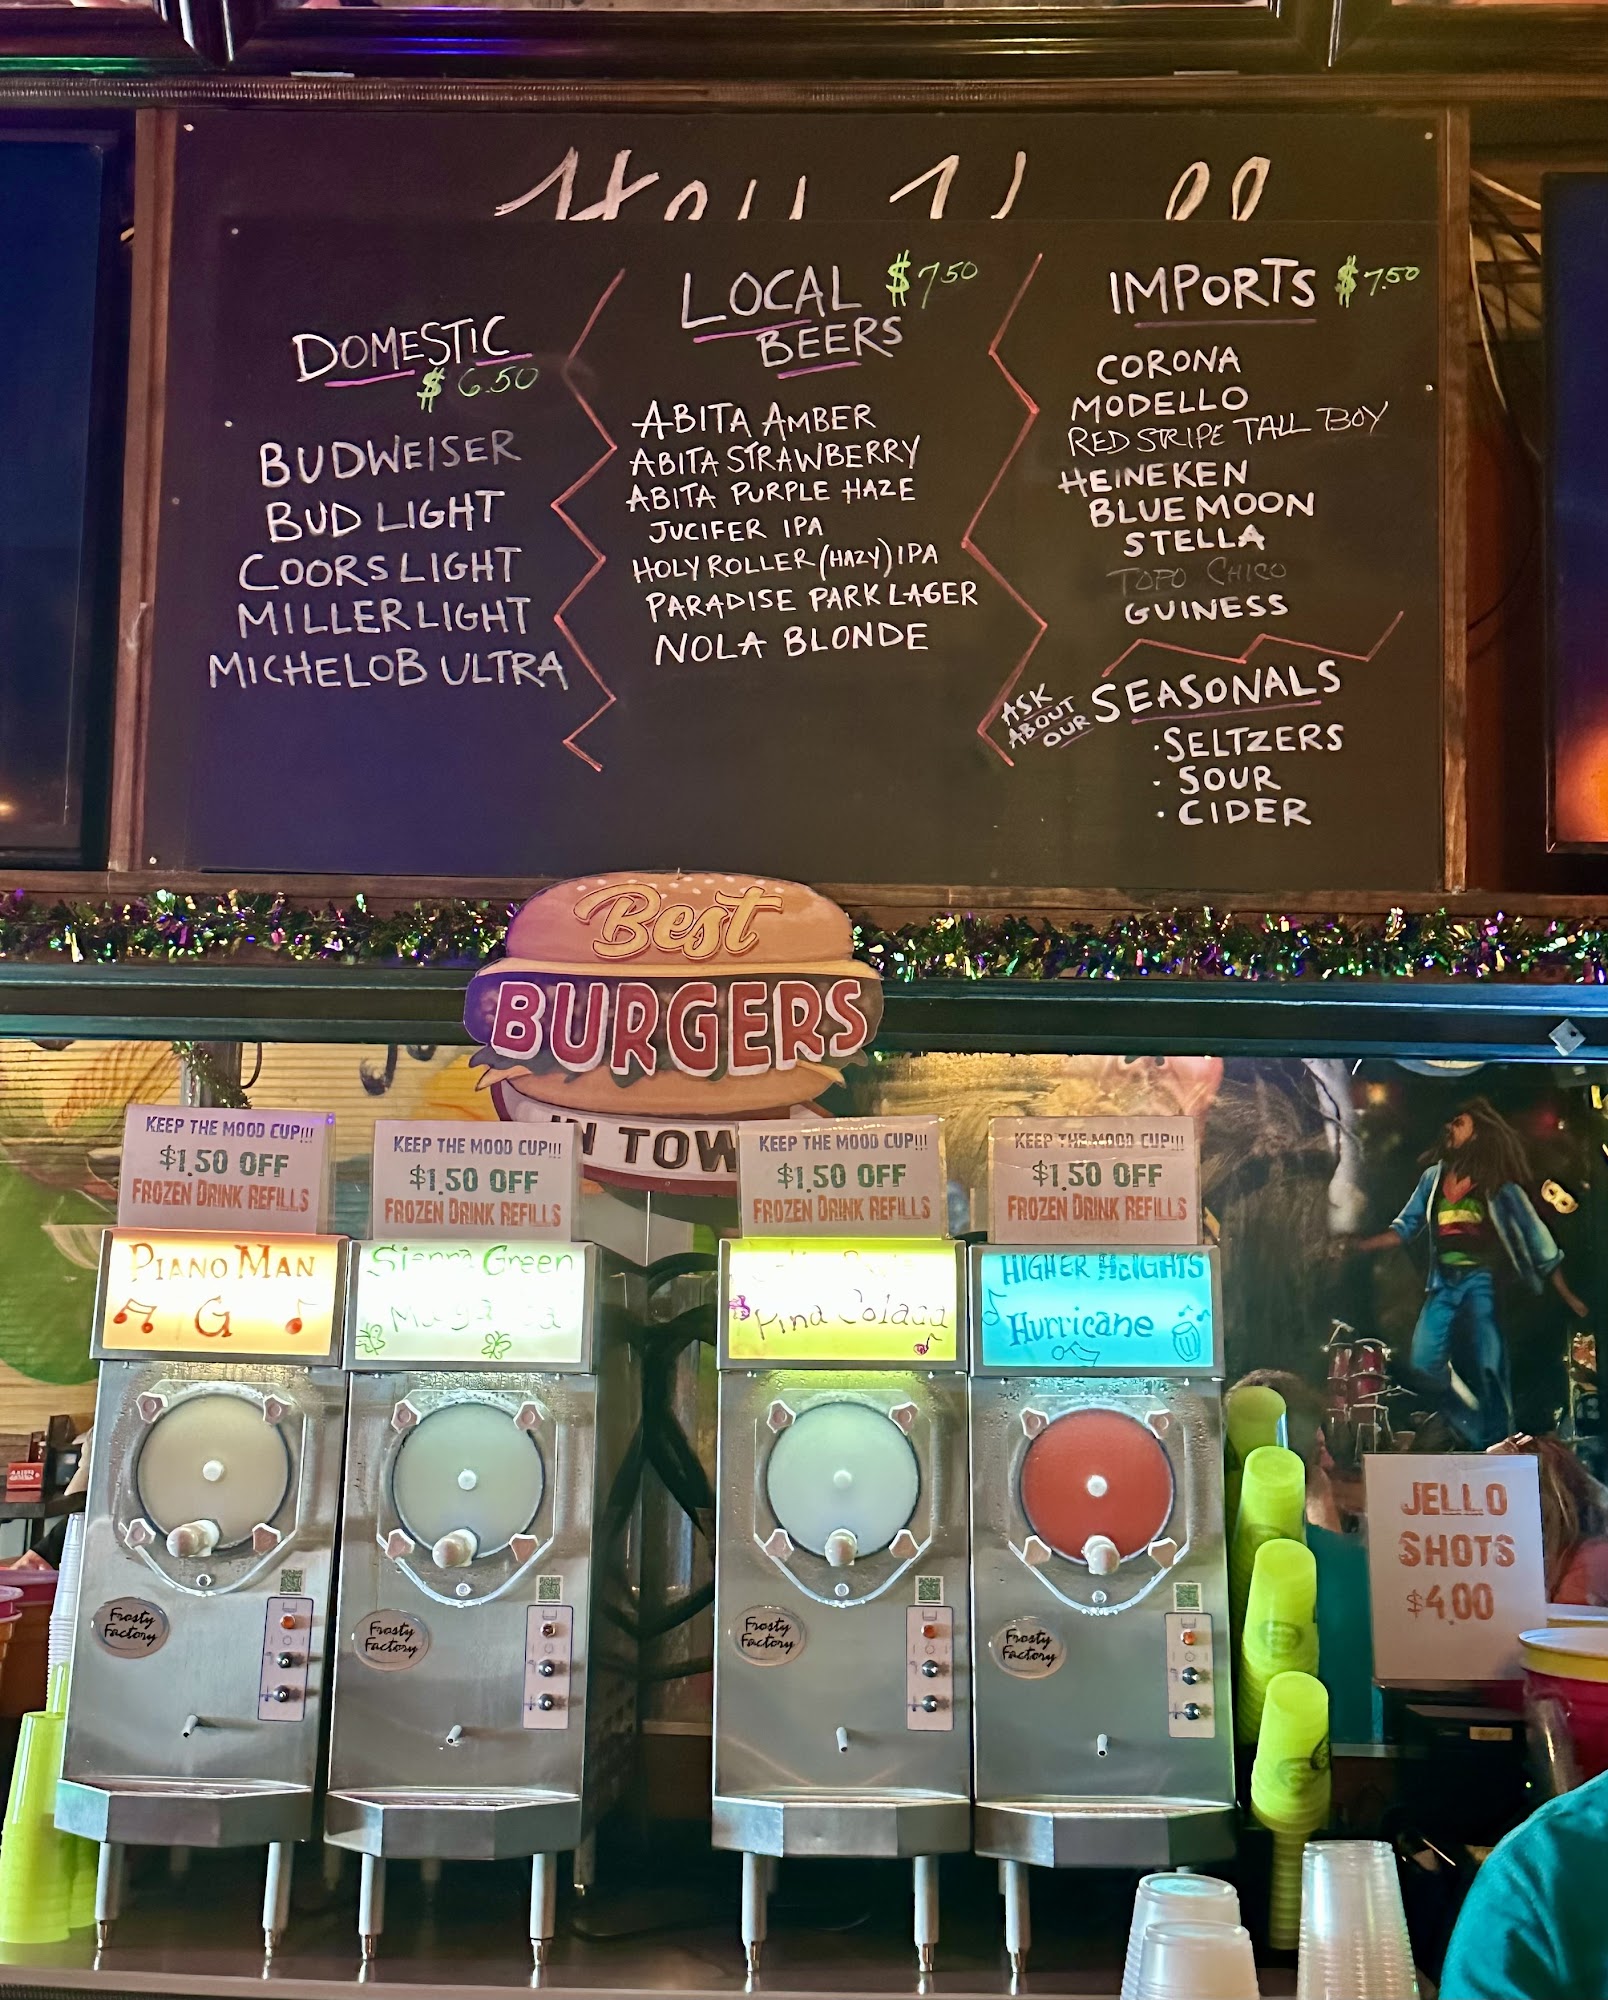 DOMESTIC
$6.50
BUDWEISER
BUD LIGHT
COORS LIGHT
MILLER LIGHT
MICHELOB ULTRA
LOCAL $7.50
BEERS
ABITA AMBER
ABITA STRAWBERRY
ABITA PURPLE HAZE
JUCIFER IPA
HOLY ROLLER (HAZY) IPA
PARADISE PARK LAGER
NOLA BLONDE
IMPORTS $7.50
CORONA
MODELLO
RED STRIPE TALL BOY
HEINEKEN
BLUE MOON
STELLA
TOPO CHICO
GUINESS
ASK
ABOUT
OUR
SEASONALS
· SELTZERS
· SOUR
· CIDER
Best
BURGERS
IN TOW
KEEP THE MOOD CUP!!!
$1.50 OFF
FROZEN DRINK REFILLS
KEEP THE MOOD CUP!!!
$1.50 OFF
FROZEN DRINK REFILLS
KEEP THE MOOD CUP!!!
$1.50 OFF
FROZEN DRINK REFILLS
KEEP THE MOOD CUP!!!
$1.50 OFF
FROZEN DRINK REFILLS
PIANO MAN
G
Sienna Green
Pina Colada
HIGHER HEIGHTS
Hurricane
Frosty
Factory
Frosty
Factory
Frosty
Factory
Frosty
Factory
JELLO
SHOTS
$4.00